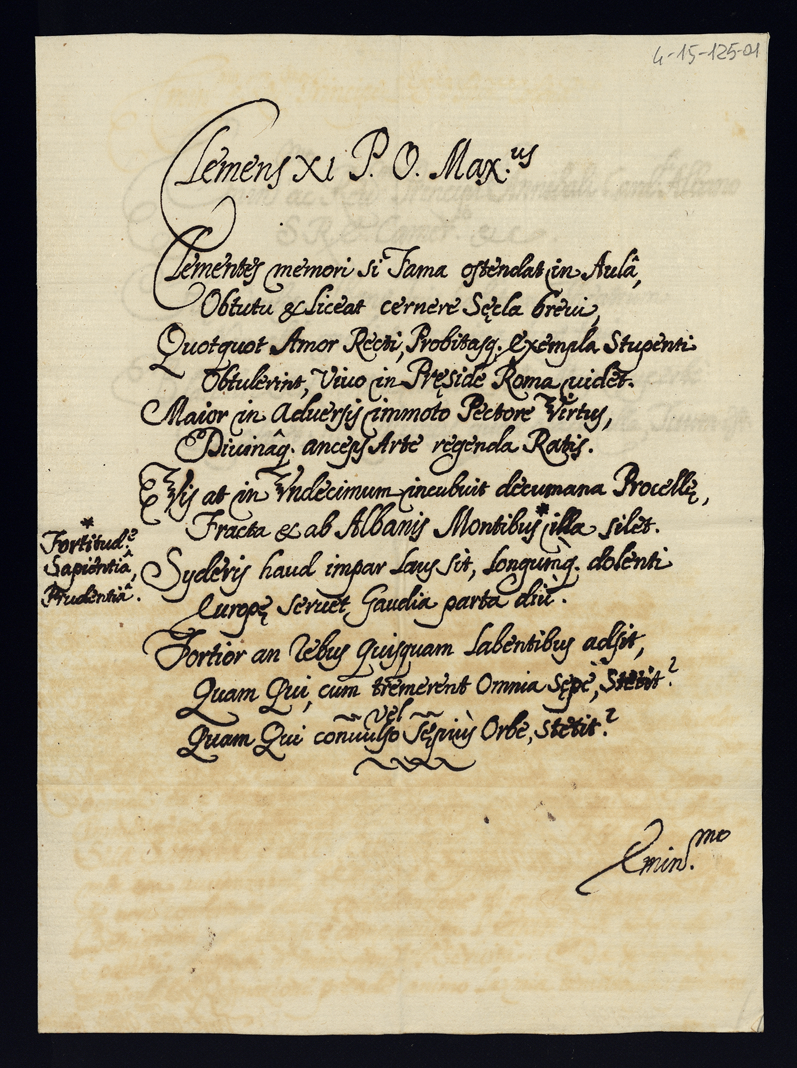 4-15-125-01
Clemens XI P. O. Max.us
Clementes memori si Fama ostendat in Aulâ,
Obtutu & liceat cernere Sęcla brevi,
Quotquot Amor Recti, Probitasq. exempla Stupenti
Obtulerint, Vivo in Pręside Roma videt.
Maior in Adversis immoto Pectore Virtus,
Divinâq. anceps Arte regenda Ratis.
Vis at in Vndecimum incubuit decumana Procellę,
Fracta & ab Albanis Montibus* illa silet.
*
Fortitud.e
Sapientiâ,
Prudentiâ.
Syderis haud impar Laus sit, Longùmq. dolenti
Europę servet Gaudia parta diù.
Fortior an rebus quisquam Labentibus adsit,
Quam Qui, cum tremerent Omnia Sępè, Stetit?
vel
Quam Qui convulso Sępiùs Orbe, Stetit?
Emin.mo